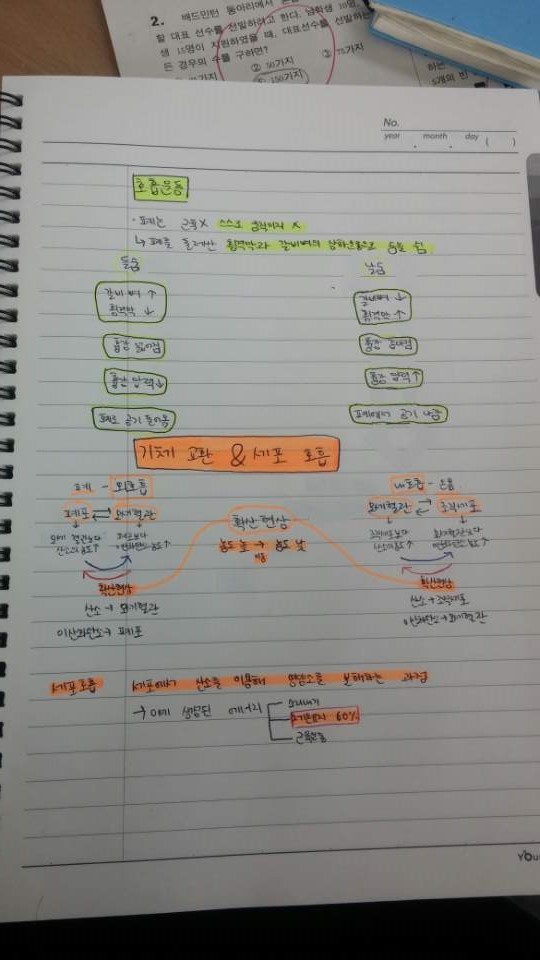 2. 배드민턴 동아리에서
할 대표 선수를 선발하려고 한다. 남학생 10명,
생 15명이 지원하였을 때, 대표선수를 선발하는
든 경우의 수를 구하면?
② 50가지 ③ 75가지
150가지
No.
year . month . day ( )
호흡운동
· 폐는 근육X 스스로 움직이지 X
↳ 폐를 둘러싼 횡격막과 갈비뼈의 상하운동으로 숨을 쉼
들숨 날숨
갈비뼈 ↑ 갈비뼈 ↓
횡격막 ↓ 횡격막 ↑
흉강 넓어짐 흉강 좁아짐
흉강 압력↓ 흉강 압력↑
폐로 공기 들어옴 폐에서 공기 나감
기체 교환 & 세포 호흡
폐 - 외호흡 내호흡 - 온몸
폐포 ⇄ 모세혈관 모세혈관 ⇄ 조직세포
확산현상
모세혈관보다 폐포보다 조직세포보다 모세혈관보다
산소의 농도↑ 이산화탄소 농도↑ 산소농도↑ 이산화탄소 농도↑
농도 높 → 농도 낮
이동
확산현상 확산현상
산소 → 모세혈관 산소 → 조직세포
이산화탄소 → 폐포 이산화탄소 → 모세혈관
세포호흡 세포에서 산소를 이용해 영양소를 분해하는 과정
→ 이때 생성된 에너지
소리내기
체온유지 60%
근육운동